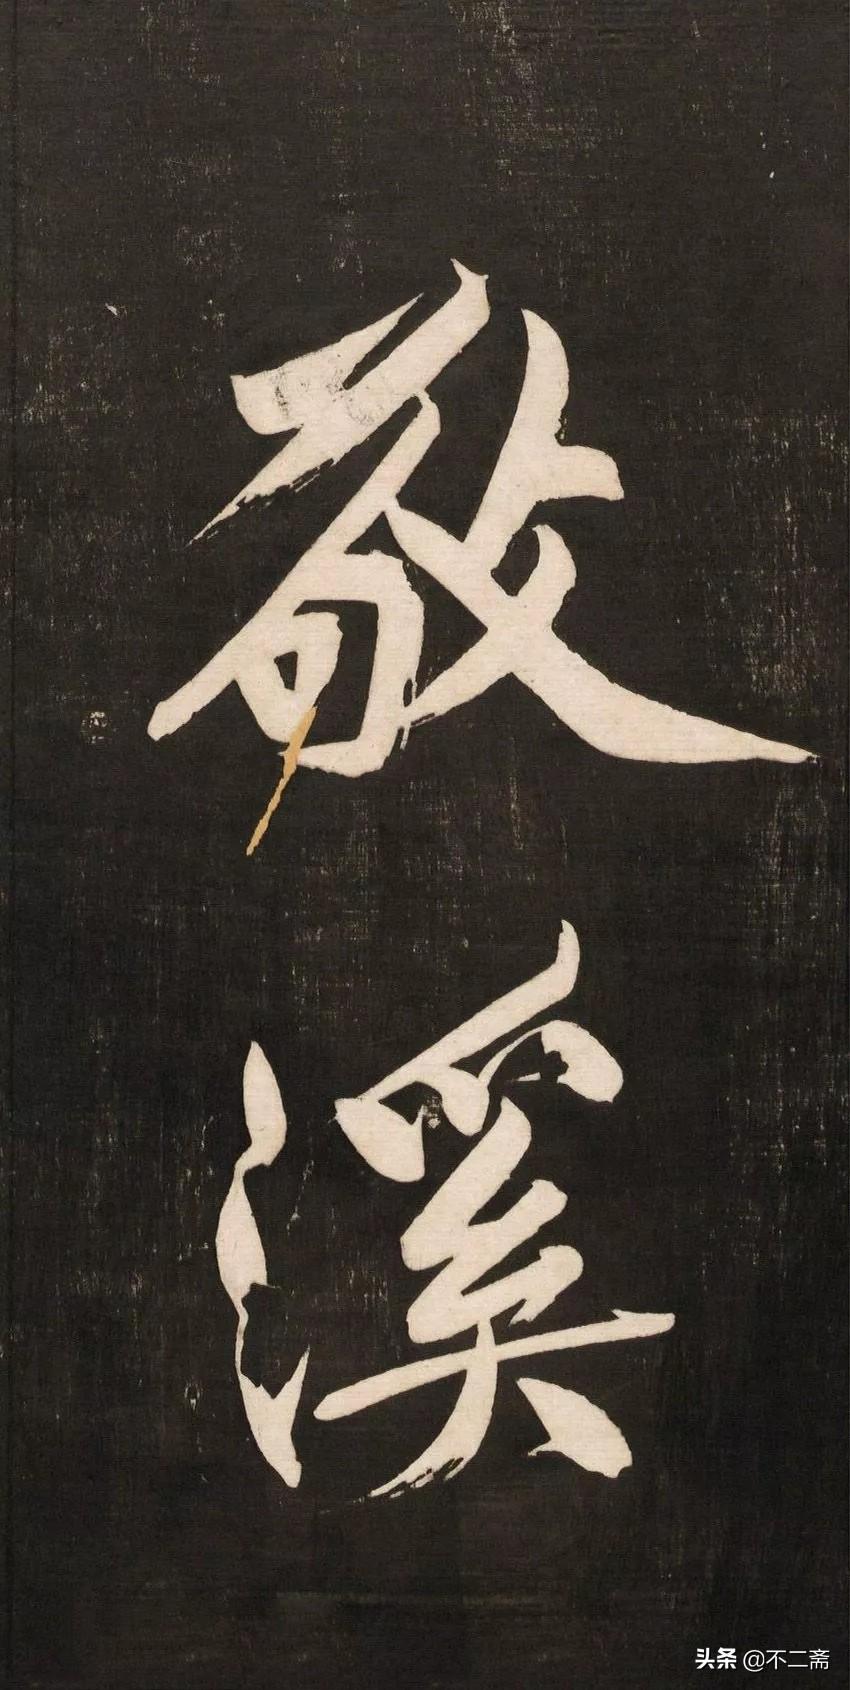 敬
溪
头条 @不二斋